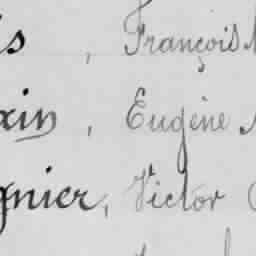 is, François
xin, Eugène
gnier, Victor